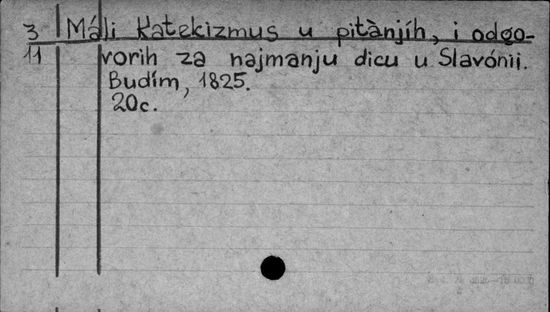 3 Máli Katekizmus u pitànjíh, i odgo-
11 vorih za najmanju dicu u Slavónii.
Budím, 1825.
20c.